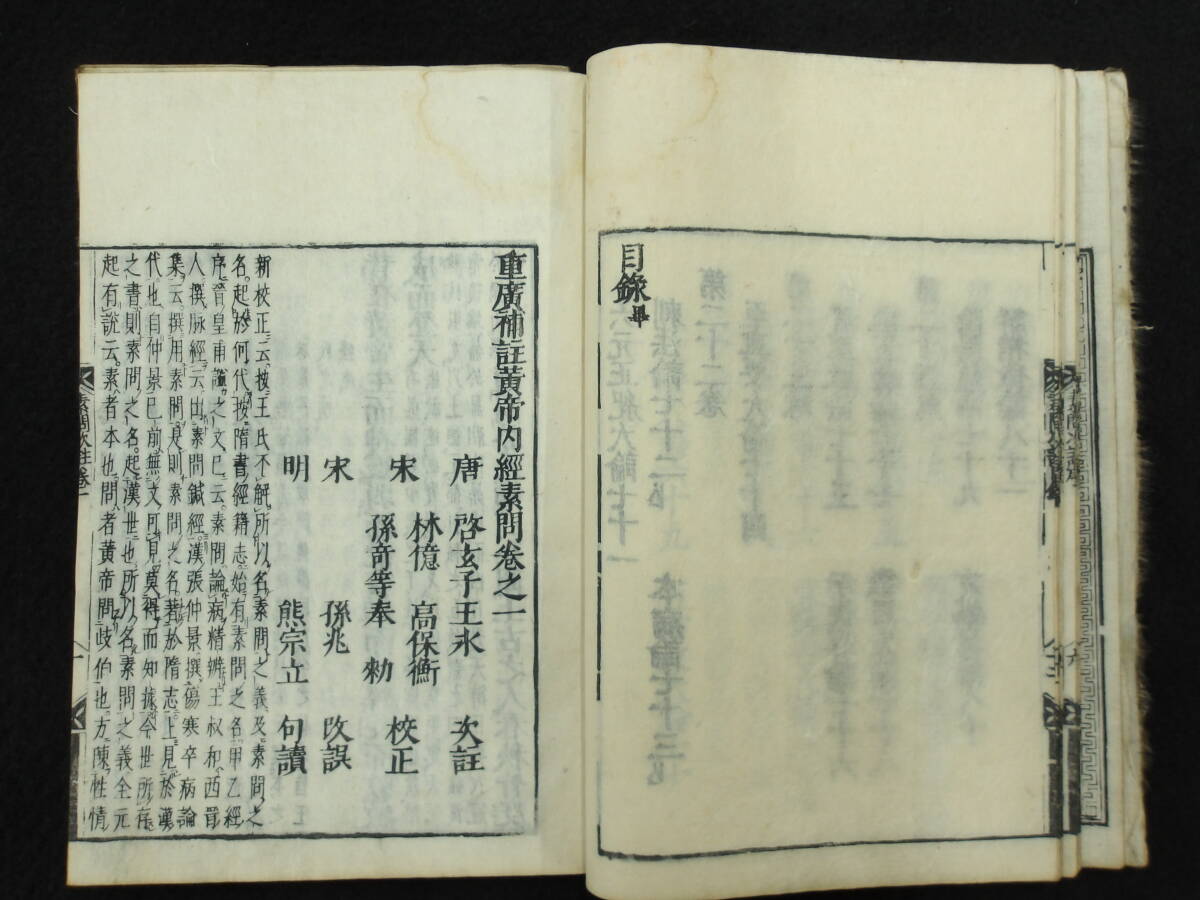 目錄畢
重廣補註黃帝内經素問卷之一
唐 啓玄子王氷 次註
宋 林億 高保衡
孫奇等奉 勑 校正
宋 孫兆 改誤
明 熊宗立 句讀
新校正云按王氏不解所以名素問之義及素問之
名起於何代按隋書經籍志始有素問之名甲乙經
序晉皇甫謐之文已云素問論病精辨王叔和西晉
人撰脉經云出素問鍼經漢張仲景撰傷寒卒病論
集云撰用素問是則素問之名著於隋志上見於漢
代也自仲景已前無文可見莫得而知據今世所存
之書則素問之名起漢世也所以名素問之義全元
起有說云素者本也問者黃帝問歧伯也方陳性情
素問次註卷一